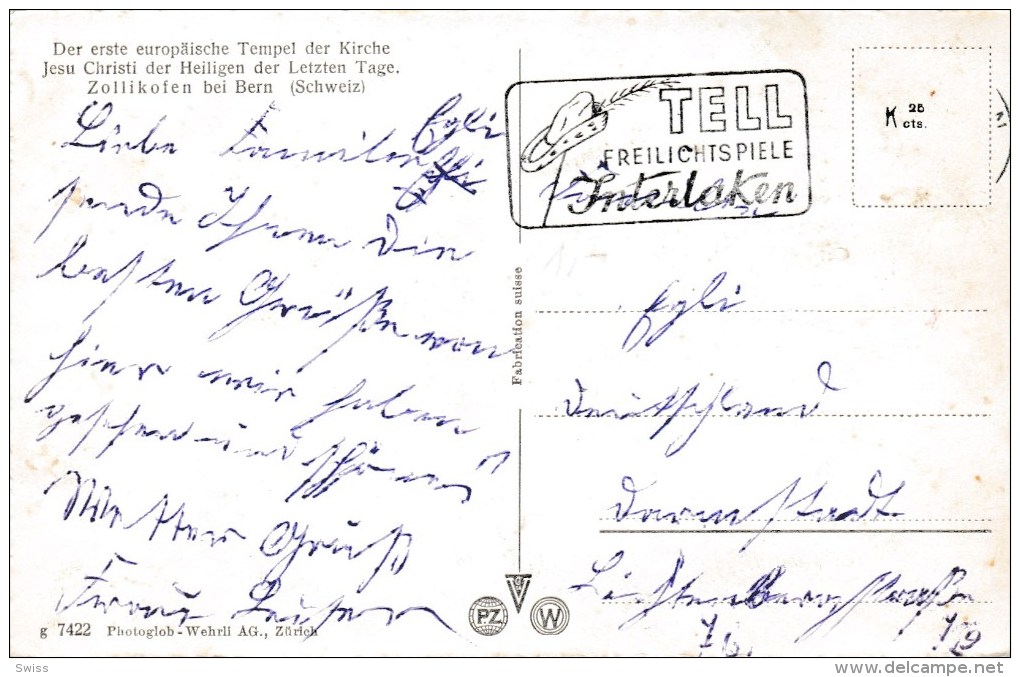 Der erste europäische Tempel der Kirche
Jesu Christi der Heiligen der Letzten Tage.
Zollikofen bei Bern (Schweiz)
Liebe Familie Egli
sende Ihnen die
besten Grüße von
hier wir haben
gesehen und schönes
Wetter Gruß
Frau
g 7422 Photoglob-Wehrli AG., Zürich
Fabrication suisse
PZ
W
TELL
FREILICHTSPIELE
Interlaken
K 25
cts.
Familie
Egli
Deutschland
Darmstadt
Lichtenbergstraße
Swiss
delcampe.net